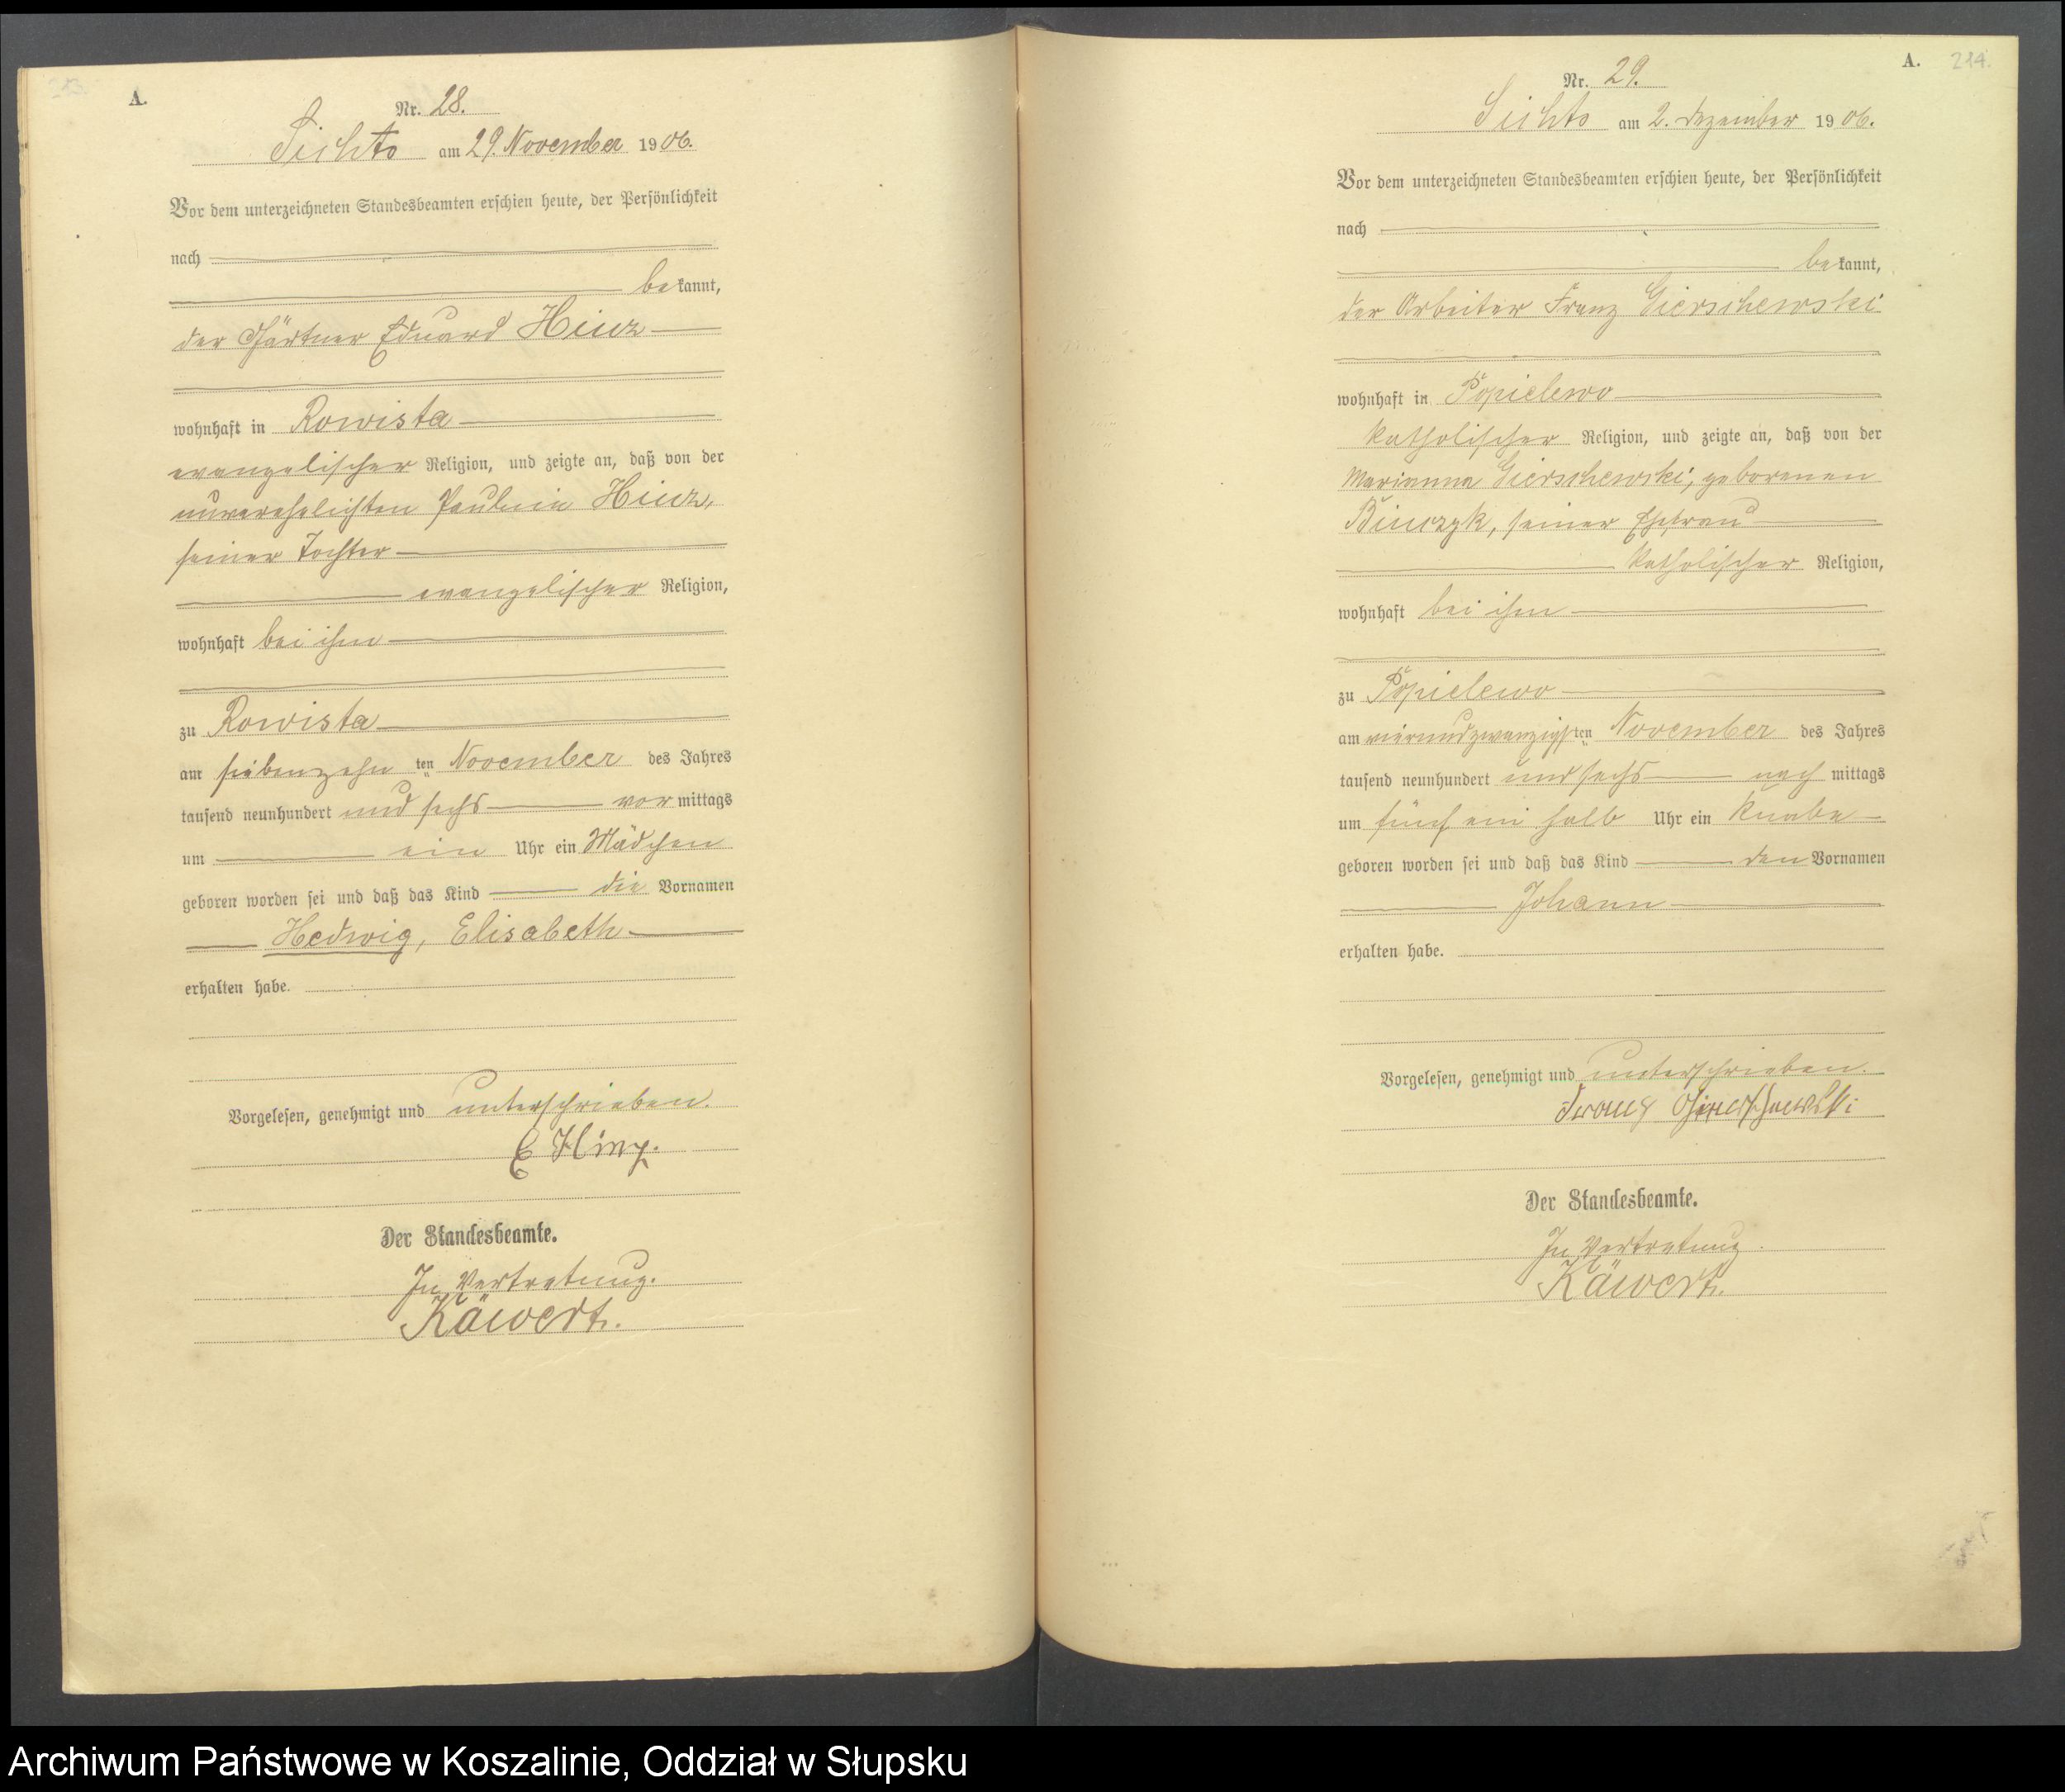 A.
Nr. 28.
Sichts am 29. November 1906.
Vor dem unterzeichneten Standesbeamten erschien heute, der Persönlichkeit
nach
bekannt,
der Gärtner Eduard Hinz
wohnhaft in Rowista
evangelischer Religion, und zeigte an, daß von der
unverehelichten Paulin Hinz,
seiner Tochter
evangelischer Religion,
wohnhaft bei ihm
zu Rowista
am siebenzehnten November des Jahres
tausend neunhundert und sechs vormittags
um ein Uhr ein Mädchen
geboren worden sei und daß das Kind die Vornamen
Hedwig, Elisabeth
erhalten habe.
Vorgelesen, genehmigt und unterschrieben.
E Hinz.
Der Standesbeamte.
In Vertretung.
Käwert.
A. 214.
Nr. 29.
Sichts am 2. Dezember 1906.
Vor dem unterzeichneten Standesbeamten erschien heute, der Persönlichkeit
nach
bekannt,
der Arbeiter Franz Gierschewski
wohnhaft in Popielewo
katholischer Religion, und zeigte an, daß von der
Marianna Gierschewski, geborenen
Binczyk, seiner Ehefrau
katholischer Religion,
wohnhaft bei ihm
zu Popielewo
am vierundzwanzigsten November des Jahres
tausend neunhundert und sechs nachmittags
um fünf ein halb Uhr ein Knabe
geboren worden sei und daß das Kind den Vornamen
Johann
erhalten habe.
Vorgelesen, genehmigt und unterschrieben.
Franz Gierschewski
Der Standesbeamte.
In Vertretung
Käwert.
Archiwum Państwowe w Koszalinie, Oddział w Słupsku